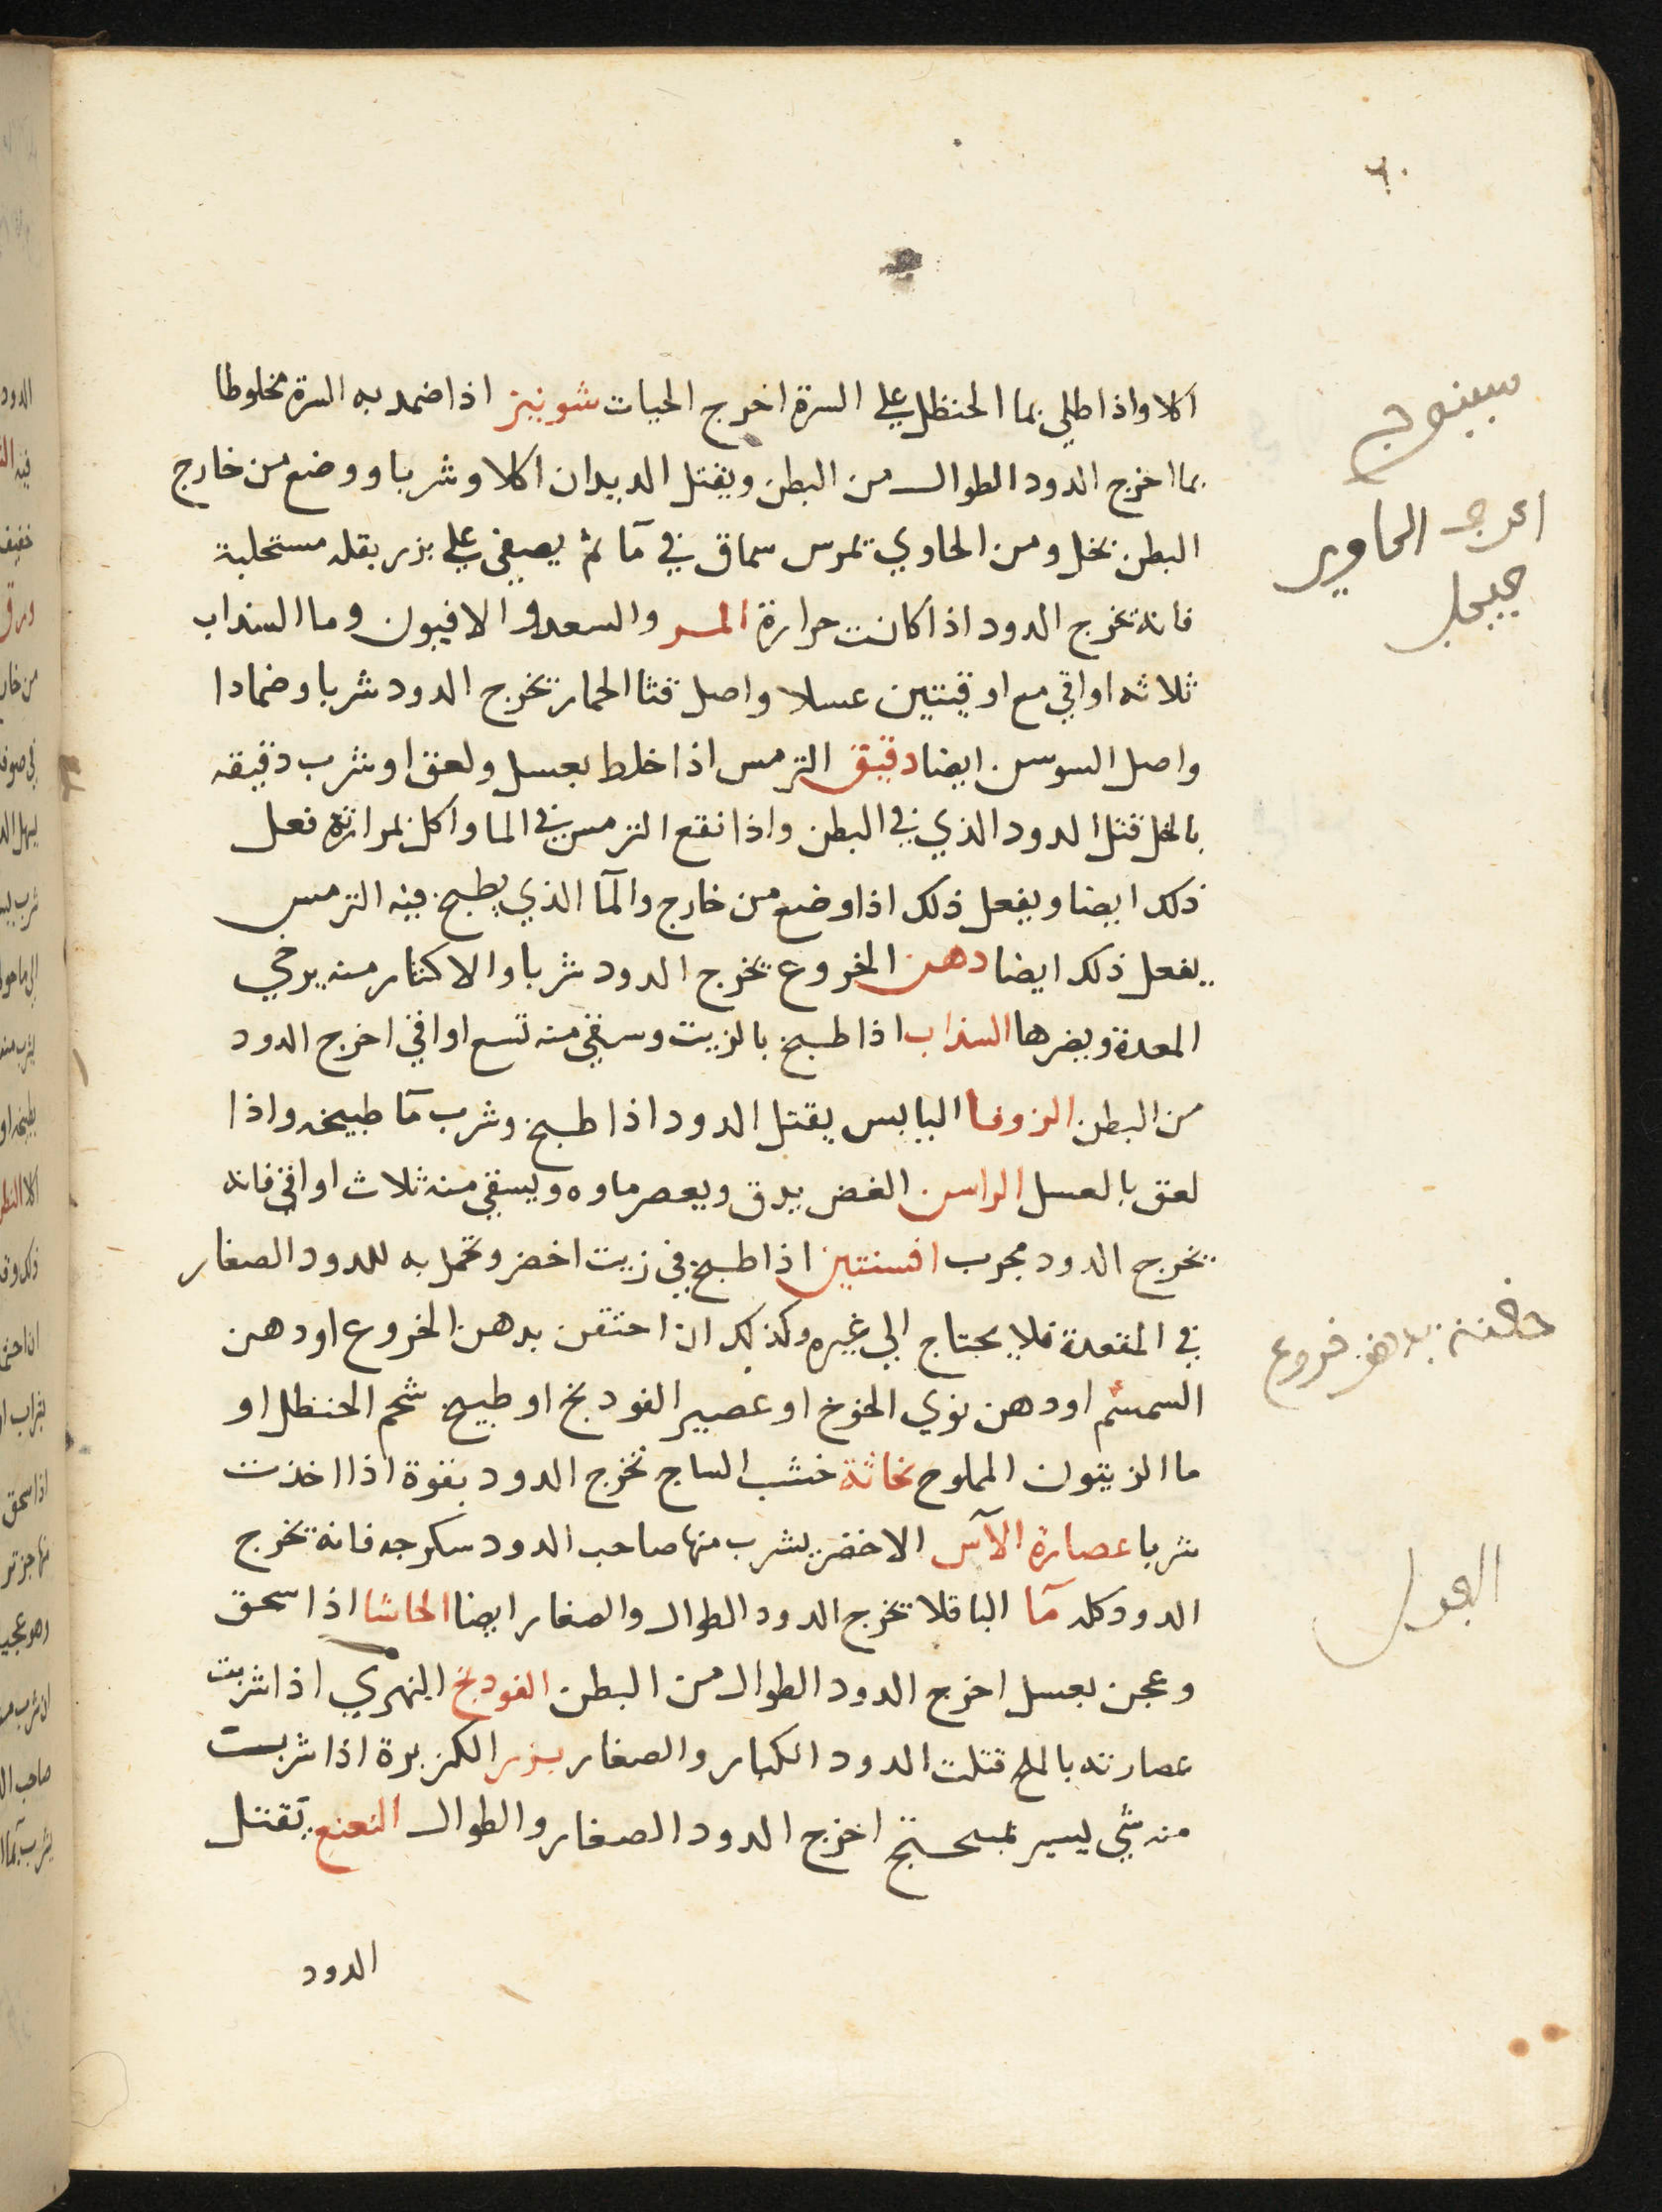 ٦٠
اكلا واذا طلي بما الحنظل علي السرة اخرج الحيات شونيز اذا ضمد به السرة مخلوطا
بما اخرج الدود الطوال من البطن ويقتل الديدان اكلا وشربا ووضع من خارج
البطن بخل ومن الحاوي تمرس سماق في مآ ثم يصفي علي بزر بقله مستحلبة
فانه تخرج الدود اذا كانت حرارة المر والسعد والافيون وما السذاب
ثلاثه اواقي مع اوقيتين عسلا واصل قثا الحمار تخرج الدود شربا وضمادا
واصل السوسن ايضا دقيق الترمس اذا خلط بعسل ولعق او شرب دقيقه
بالخل قتل الدود الذي في البطن واذا نقع الترمس في الما واكل بمرارته فعل
ذلك ايضا ويفعل ذلك اذا وضع من خارج والمآ الذي يطبخ فيه الترمس
يفعل ذلك ايضا دهن الخروع يخرج الدود شربا والاكثار منه يرخي
المعدة ويضرها السذاب اذا طبخ بالزيت وسقي منه تسع اواقي اخرج الدود
من البطن الزوفا اليابس يقتل الدود اذا طبخ وشرب مآ طبيخه واذا
لعق بالعسل الراسن الغض يدق ويعصر ماوه ويسقي منه ثلاث اواقي فانه
يخرج الدود مجرب افسنتين اذا طبخ في زيت اخضر وتحمل به للدود الصغار
في المقعدة فلا يحتاج الي غيره وكذلك ان احتقن بدهن الخروع او دهن
السمسم او دهن نوي الخوخ او عصير الفودنج او طبيخ شحم الحنظل او
ما الزيتون المملوح نحاتة خشب الساج تخرج الدود بقوة اذا اخذت
شربا عصارة الآس الاخضر يشرب منها صاحب الدود سكرجه فانه تخرج
الدود كله مآ الباقلا تخرج الدود الطوال والصغار ايضا الحاشا اذا سحق
وعجن بعسل اخرج الدود الطوال من البطن الفودنج النهري اذا شربت
عصارته بالملح قتلت الدود الكبار والصغار بزر الكزبرة اذا شربت
منه شي يسير بميبختج اخرج الدود الصغار والطوال النعنع يقتل
الدود
حقنة بدهن خروع